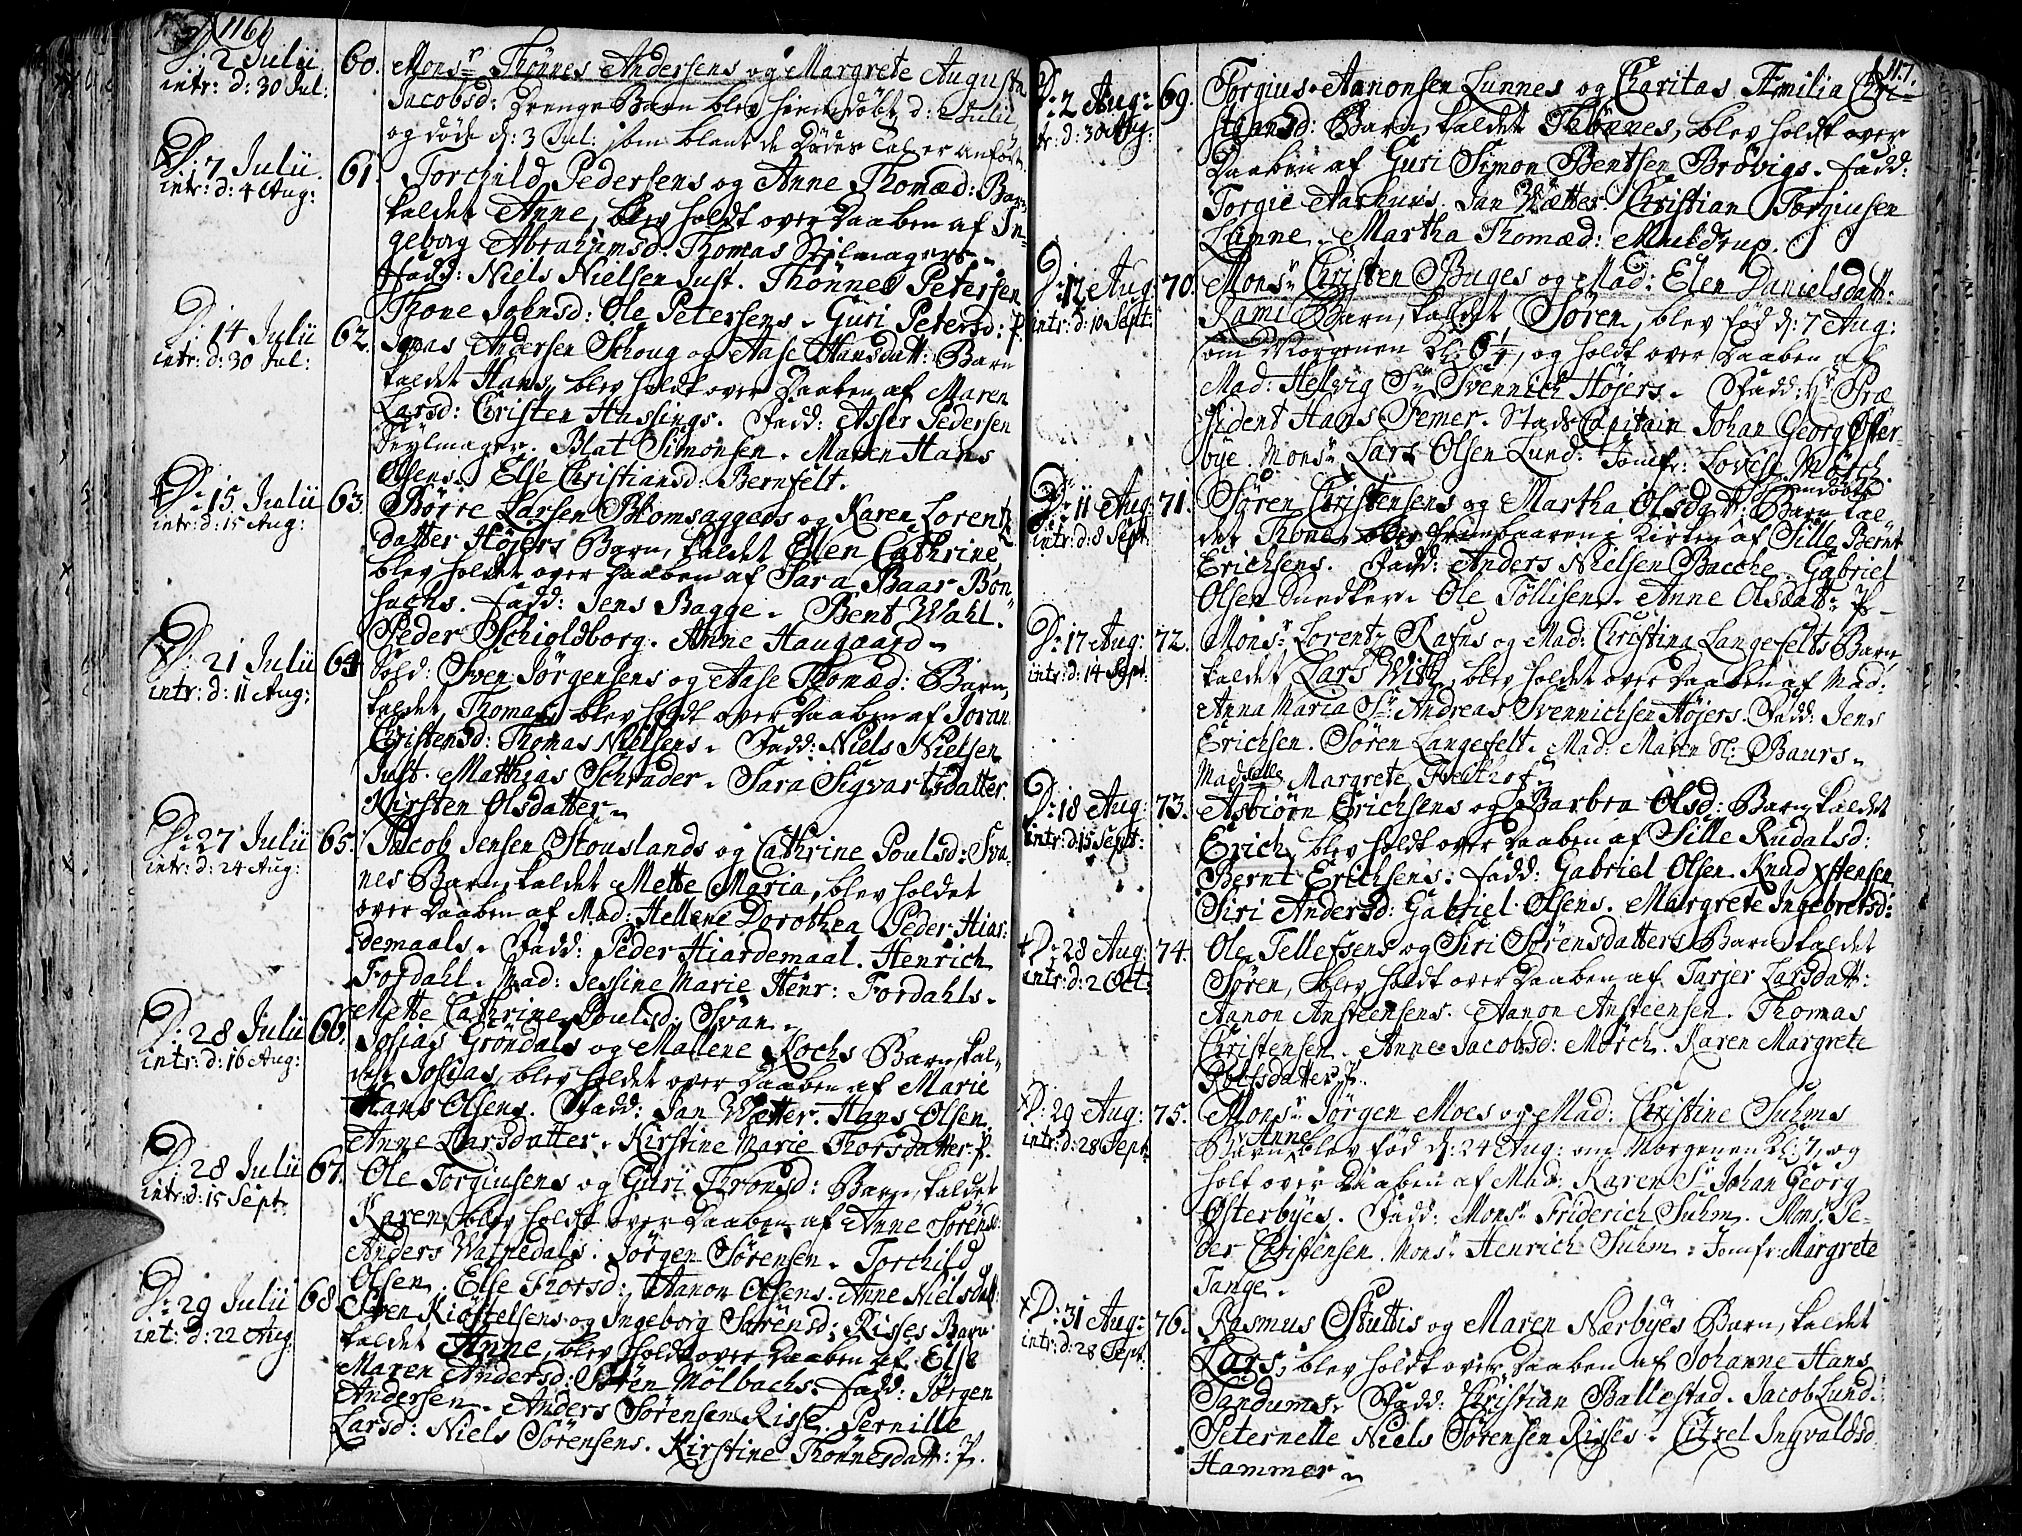 116
D: 2 Julii
intr: d: 30 Jul:
60.
Monsr Thönnes Andersens og Margrete Augusta
Jacobsd: Drenge Barn blev hiemdöbt d: Julii
og döde d: 3 Jul: som blant de Dödes Tal er anfört
D: 7 Julii
intr: d: 4 Aug:
61.
Torchild Pedersens og Anne Thomæd: Barn
kaldet Anne, blev holdt over Daaben af In-
geborg Abrahimsd: Thomas Seilmagers.
Fadd: Niels Nielsen Just. Thönnes Petersen
Thone Johnsd: Ole Petersens. Guri Petersd: P.
D: 14 Julii
intr: d: 30 Jul:
62.
Jonas Andersen Schoug og Aase Hansdatt: Barn
kaldet Hans, blev holdt over Daaben af Maren
Larsd: Christen Hussings. Fadd: Asser Pedersen
Seylmager. Blat Simonsen. Maren Hans
Olsens. Else Christiansd: Bernfelt.
D: 15 Julii
intr: d: 15 Aug:
63.
Börre Larsen Blomsaggers og Karen Lorentz
datter Höjers Barn, kaldet Elen Cathrine,
blev holdet over Daaben af Sara Baar Bon-
sachs. Fadd: Jens Bagge. Bent Wahl.
Peder Schioldborg. Anne Haugaard.
D: 21 Julii
intr: d: 11 Aug:
64
Sold: Sven Jörgensens og Aase Thomæd: Barn,
kaldet Thomas, blev holdt over Daaben af Joran
Christensd: Thomas Nielsens. Fadd: Niels Nielsen
Just. Matthias Schrader. Sara Sigvartsdatter.
Kirsten Olsdatter.
D: 27 Julii
intr: d: 24 Aug:
65.
Jacob Jensen Stouslands og Cathrine Poulsd: Sva-
nes Barn, kaldet Mette Maria, blev holdet
over Daaben af Mad: Hellene Dorothea Peder Hiar-
demaals. Fadd: Peder Hiardemaal. Henrich
Fordahl. Mad: Jessine Marie Henr: Fordahls.
Mette Cathrine Poulsd: Svan.
D: 28 Julii
intr: d: 16 Aug:
66.
Josias Gröndals og Mallene Kochs Barn, kal-
det Josias, blev holdet over Daaben af Marie
Hans Olsens. Fadd: Jan Wætter. Hans Olsen.
Anne Larsdatter. Kirstine Marie Thorsdatter P.
D: 28 Julii
intr: d: 15 Sept:
67.
Ole Torgiusens og Guri Thronsd: Barn, kaldet
Karen, blev holdt over Daaben af Anne Sörensd:
Anders Watnedals. Jörgen Sörensen. Torchild
Olsen. Else Thorsd: Aanon Olsens. Anne Nielsdatt:
D: 29 Julii
int: d: 22 Aug
68.
Sven Kiöstelsens og Ingeborg Sörensd: Risses Barn
kaldet Anne, blev holdt over Daaben af Else
Maren Andersd: Sören Mölbachs. Fadd: Jörgen
Andersen. Anders Sörensen Risse. Pernille
Larsd: Niels Sörensens. Kirstine Thönnesdatt: P.
117.
D: 2 Aug:
intr: d: 30 Aug:
69.
Torgius Aanonsen Lunnes og Charitas Emilia Chri-
stiansd: Barn, kaldet Thönnes, blev holdt over
Daaben af Guri Simon Bentsen Brövigs. Fadd:
Torgie Aashuus. Jan Wætter. Christian Torgiusen
Lunne. Martha Thomæd: Muldrup.
D: 12 Aug:
intr: d: 10 Sept:
70.
Monsr Christen Buges og Mad: Elen Danielsdatt:
Rami Barn, kaldet Sören, blev föd d: 7 Aug:
om Morgenen Kl: 6 1/4, og holdt over Daaben af
Mad: Helvig Sr Svennich Höjers. Fadd: Hr Præ
sident Hans Femer. Stads Capitain Johan Georg Öster
bye. Monsr Lars Olsen Lund. Jomfr: Lovise Mörch.
D: 11 Aug:
intr: d: 8 Sept:
71.
Sören Christensens og Martha Olsdatt: hiemdöbte Barn kal-
det Thone, blev frembaaren i Kirken af Sille Bernt
Erichsens. Fadd: Anders Nielsen Bacche. Gabriel
Olsen Snedker. Ole Töllisen. Anne Olsdatt: P.
D: 17 Aug:
intr: d: 14 Sept:
72.
Monsr Lorentz Rafns og Mad: Christina Langefelts Barn,
kaldet Lars With, blev holdet over Daaben af Mad:
Anna Maria Sr Andreas Svennichsen Höjers. Fadd: Jens
Erichsen. Sören Langefelt. Mad: Maren Sl: Baurs.
Madselle Margrete Fleithof.
D: 18 Aug:
intr: d: 15 Sept:
73.
Asbiörn Erichsens og Barbra Olsd: Barn, kaldet
Erich, blev holdt over Daaben af Sille Rudalsd:
Bernt Erichsens. Fadd: Gabriel Olsen. Knud Ystensen
Siri Andersd: Gabriel Olsens. Margrete Ingebretsd:
D: 28 Aug:
intr: d: 2 Oct:
74.
Ole Tellefsens og Siri Sörensdatters Barn kaldet
Sören, blev holdt over Daaben af Tarjer Larsdatt:
Aanon Ansteensens. Aanon Ansteensen. Thomas
Christensen. Anne Jacobsd: Mörch. Karen Margrete
Rolfsdatter P.
D: 29 Aug:
intr: d: 28 Sept:
75.
Monsr Jörgen Moes og Mad: Christine Suhms
Barn Anne blev föd d: 24 Aug: om Morgenen Kl: 7, og
holt over Daaben af Mad: Karen Sr Johan Georg
Österbyes. Fadd: Monsr Friderich Suhm. Monsr Pe-
der Christensen. Monsr Henrich Suhm. Jomfr: Margrete
Tange.
D: 31 Aug:
intr: d: 28 Sept:
76.
Rasmus Stuttis og Maren Nærbyes Barn, kaldet
Lars, blev holdt over Daaben af Johanne Hans
Sandums. Fadd: Christian Ballestad. Jacob Lund.
Peternelle Niels Sörensen Risses. Citzel Ingvaldsd
Hammer.